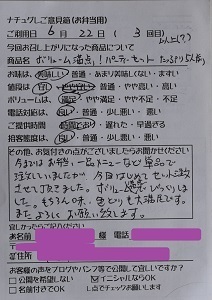 ナチュグレご意見箱(お弁当用)
ご利用日 6月 22日 ( 3 回目)
以上(?)
今回お召し上がりになった商品について
商品名 ボリューム満点!パーティーセット
お味は 美味しい・普通・あまり美味しくない・まずい
値段は 安い・普通・やや高い・高い
ボリュームは 満足・やや満足・やや不足・不足
電話対応は 良い・普通・少し悪い・悪い
ご提供時間 時間どおり・遅れた・早過ぎる
接客態度は 良い・普通・少し悪い・悪い
その他、お気付きの点がございましたらお聞かせください
今までは お弁当、一品メニューなど単品で
注文していましたが、今日はじめてセットに
させて頂きました。ボリューム満点でびっくりしま
した。もちろん味、色どりも大満足です。
また、よろしくお願い致します。
宜しかったらご記入ください
お名前 様 電話
〒
ご住所
お客様の声をブログやパンフ等で公開して宜しいですか?
□公開を希望しない ☑イニシャルならOK
□名前付きでOK し点でチェックお願いします